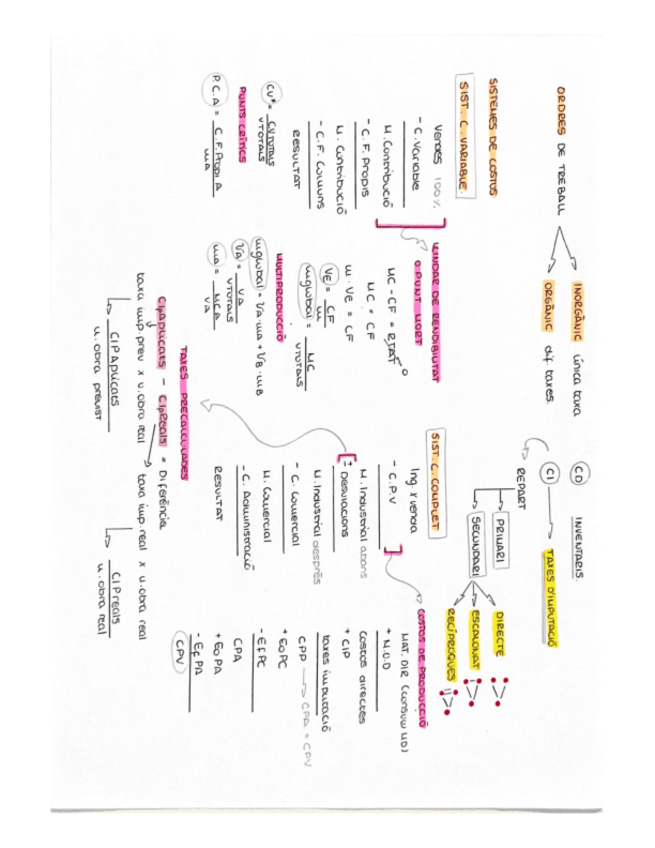 ORDRES DE TREBALL
INORGÀNIC única taxa
ORGÀNIC dif taxes.
CD INVENTARIS.
CI TAXES D'IMPUTACIÓ
REPART
PRIMARI
SECUNDARI
DIRECTE
ESCALONAT
RECÍPROQUES
SISTEMES DE COSTOS
SIST. C. VARIABLE
Vendes 100%
- C. Variable
M. Contribució
- C. F. Propis
M. Contribució
- C. F. Comuns
RESULTAT
LLINDAR DE RENDIBILITAT
O PUNT MORT
MC - CF = RTAT 0
MC = CF
m · VE = CF
VE = CF
m
mglobal = MC
VTOTALS
CV* = CV TOTALS
VTOTALS
PUNTS CRÍTICS
P.C.A = C.F. Propi A
mA
MULTIPRODUCCIÓ
mglobal = VA · mA + VB · mB
VA = VA
VTOTALS
mA = MCA
VA
SIST. C. COMPLET
Ing x venda
- C.P.V
M. Industrial abans
± Desviacions
M. Industrial després
- C. Comercial
M. Comercial
- C. Administració
RESULTAT
COSTOS DE PRODUCCIÓ
MAT. DIR (consum MD)
+ M.O.D
Costos directes
+ CIP
taxes imputació
CPP → CPA = CPV
+ EoPC
- EfPC
CPA
+ EoPA
- EfPA
CPV
TAXES PRECALCULADES
CIPAplicats - CIPReals = Diferència
taxa imp prev x u.obra real
taxa imp real x u.obra real
CIPAplicats
u. obra previst
CIPreals
u. obra real